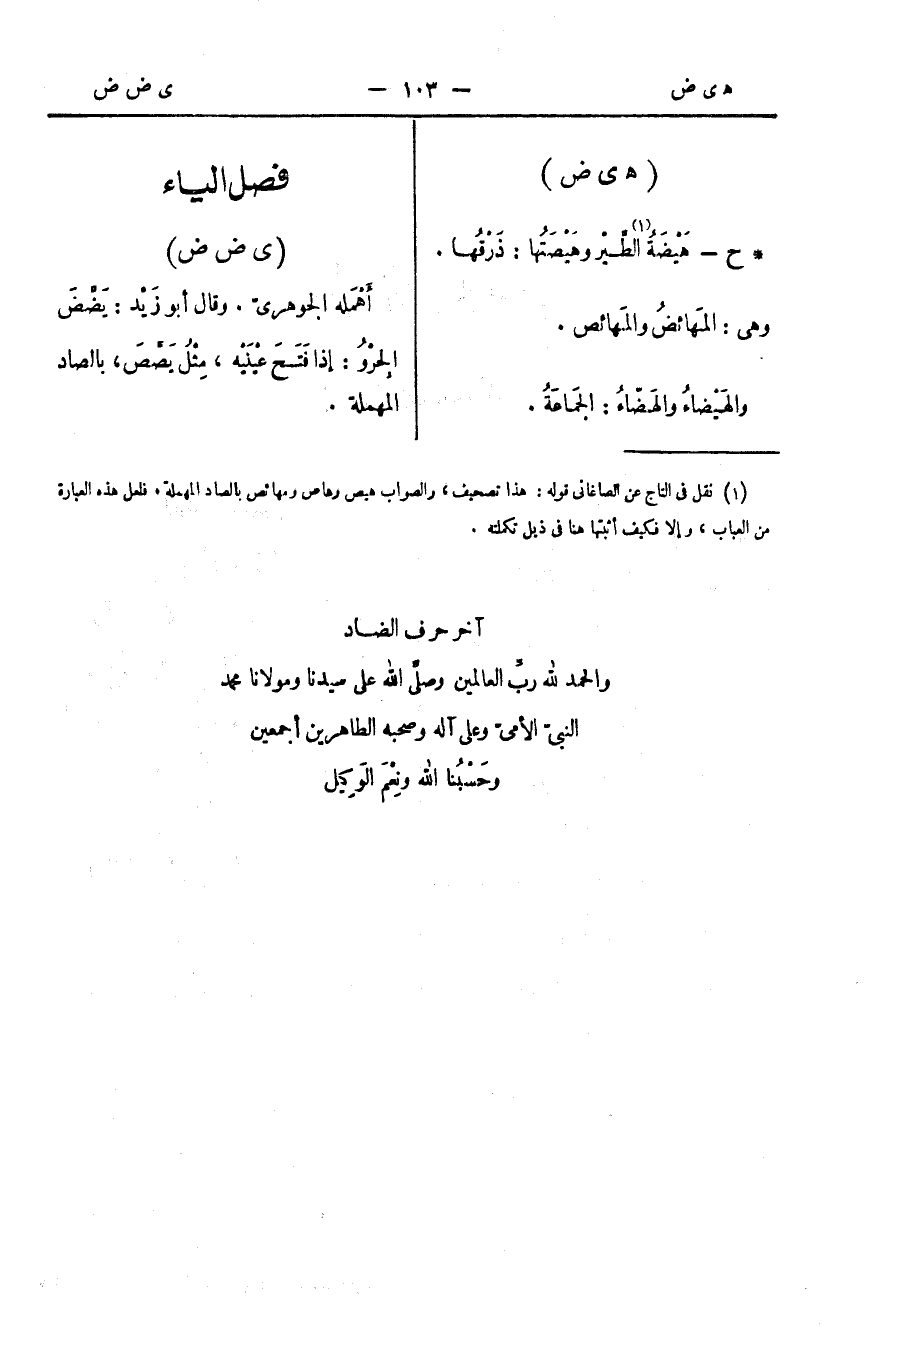 ه ى ض — ١٠٣ — ى ض ض
( ه ى ض )
* ح — هَيْضَةُ الطَّيْرِ (١) وهَيْصَتُها : ذَرْقُها .
وهى : المَهائضُ والمَهائص .
والهَيْضاءُ والهَضّاءُ : الجَمَاعَةُ .
فصل الياء
(ى ض ض)
أَهْمَله الجوهرىّ . وقال أبو زَيْد : يَضَّضَ
الجِرْوُ : إذا فَتَـحَ عَيْنَيْه ، مِثْلُ يَصَّصَ ، بالصاد
المهملة .
(١) نقل فى التاج عن الصاغانى قوله : هذا تصحيف ، والصواب هيص وهاص ومهائص بالصاد المهملة . فلعل هذه العبارة
من العباب ، وإلا فكيف أثبتها هنا فى ذيل تكملته .
آخر حرف الضاد
والحمد لله ربّ العالمين وصلَّى الله على سيدنا ومولانا محمد
النبىّ الأمىّ وعلى آله وصحبه الطاهرين أجمعين
وحَسْبُنا الله ونِعْمَ الوَكِيل